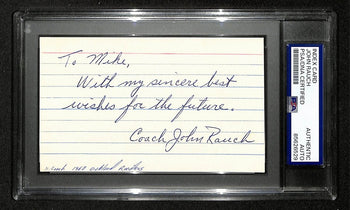 To Mike,
With my sincere best
wishes for the future.
Coach John Rauch
1968 Oakland Raiders
INDEX CARD
JOHN RAUCH
PSA/DNA CERTIFIED
AUTHENTIC
AUTO
PSA